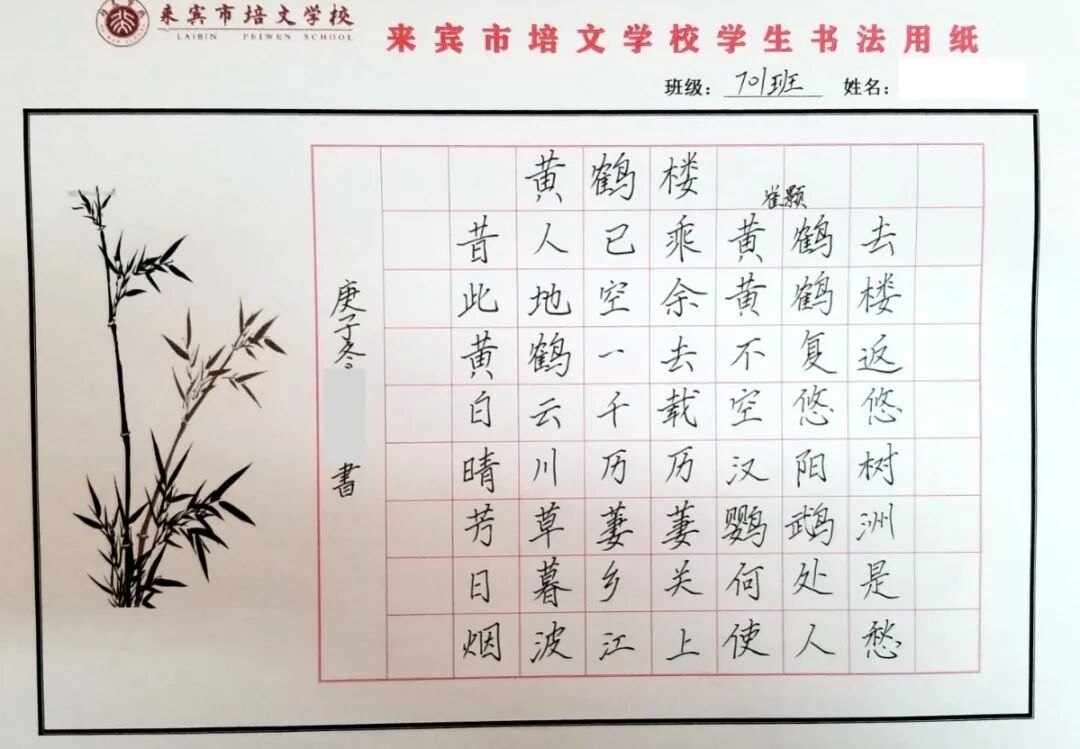 来宾市培文学校
LAIBIN PEIWEN SCHOOL
来宾市培文学校学生书法用纸
班级：701班 姓名：
黄鹤楼
崔颢
昔人已乘黄鹤去
此地空余黄鹤楼
黄鹤一去不复返
白云千载空悠悠
晴川历历汉阳树
芳草萋萋鹦鹉洲
日暮乡关何处是
烟波江上使人愁
庚子冬
書